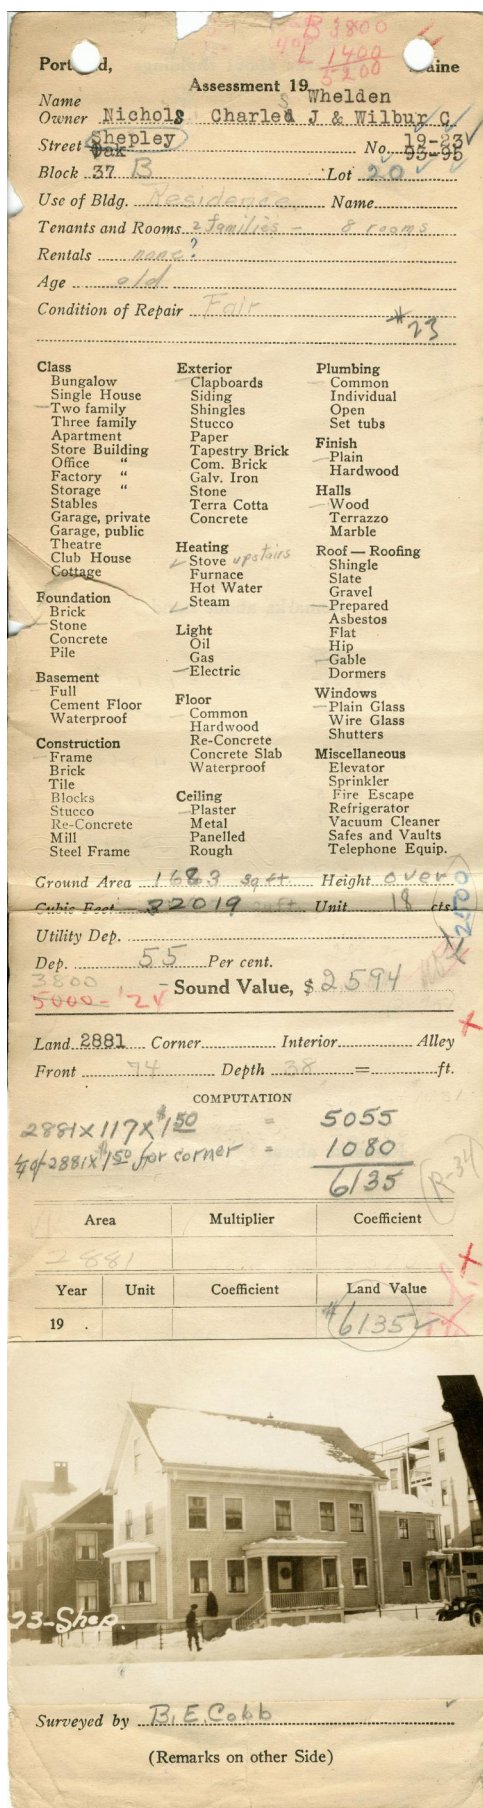 B 3800
L 1400
5200
Portland, Maine
Assessment 19
Whelden
Name
Owner Nichols Charles J & Wilbur C.
Street Shepley No. 19-23
Oak 93-95
Block 37 B Lot 20
Use of Bldg. Residence Name
Tenants and Rooms 2 families - 8 rooms
Rentals none?
Age old
Condition of Repair Fair
#23
Class
Bungalow
Single House
Two family
Three family
Apartment
Store Building
Office "
Factory "
Storage "
Stables
Garage, private
Garage, public
Theatre
Club House
Cottage
Foundation
Brick
Stone
Concrete
Pile
Basement
Full
Cement Floor
Waterproof
Construction
Frame
Brick
Tile
Blocks
Stucco
Re-Concrete
Mill
Steel Frame
Exterior
Clapboards
Siding
Shingles
Stucco
Paper
Tapestry Brick
Com. Brick
Galv. Iron
Stone
Terra Cotta
Concrete
Heating
Stove upstairs
Furnace
Hot Water
Steam
Light
Oil
Gas
Electric
Floor
Common
Hardwood
Re-Concrete
Concrete Slab
Waterproof
Ceiling
Plaster
Metal
Panelled
Rough
Plumbing
Common
Individual
Open
Set tubs
Finish
Plain
Hardwood
Halls
Wood
Terrazzo
Marble
Roof — Roofing
Shingle
Slate
Gravel
Prepared
Asbestos
Flat
Hip
Gable
Dormers
Windows
Plain Glass
Wire Glass
Shutters
Miscellaneous
Elevator
Sprinkler
Fire Escape
Refrigerator
Vacuum Cleaner
Safes and Vaults
Telephone Equip.
Ground Area 1683 sq ft Height over
Cubic Feet 32019 cu ft Unit 18 cts.
2500
Utility Dep.
Dep. 55 Per cent.
3800
5000 - '24
Sound Value, $ 2594
Land 2881 Corner Interior Alley
Front 74 Depth 38 = ft.
COMPUTATION
2881 x 117 x $1.50 = 5055
1/4 of 2881 x $1.50 for corner = 1080
6135
R-34
Area Multiplier Coefficient
2881
Year Unit Coefficient Land Value
19 . $6135
23-Shep.
Surveyed by B. E. Cobb
(Remarks on other Side)